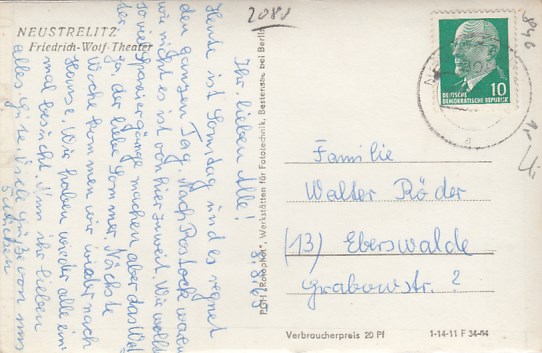 NEUSTRELITZ
Friedrich-Wolf-Theater
2080
8.8.65
Ihr lieben Alle!
Heute ist Sonntag und es regnet
den ganzen Tag. Nach Rostock waren
wir nicht es ist von hier zu weit. Wir wollten
so viel Spaziergänge machen aber das Wet
ter
Ja, der liebe Sommer. Nächste
Woche kommen wir wieder nach
Hause. Wir haben wieder alle ein
mal besucht. Nun ihr lieben
alles gute viele grüße von uns
PGH "Rotophot", Werkstätten für Fototechnik, Bestensee bei Berlin
10
DEUTSCHE
DEMOKRATISCHE REPUBLIK
Familie
Walter Röder
(13) Eberswalde
Grabowstr. ?
Verbraucherpreis 20 Pf
1-14-11 F 34-64